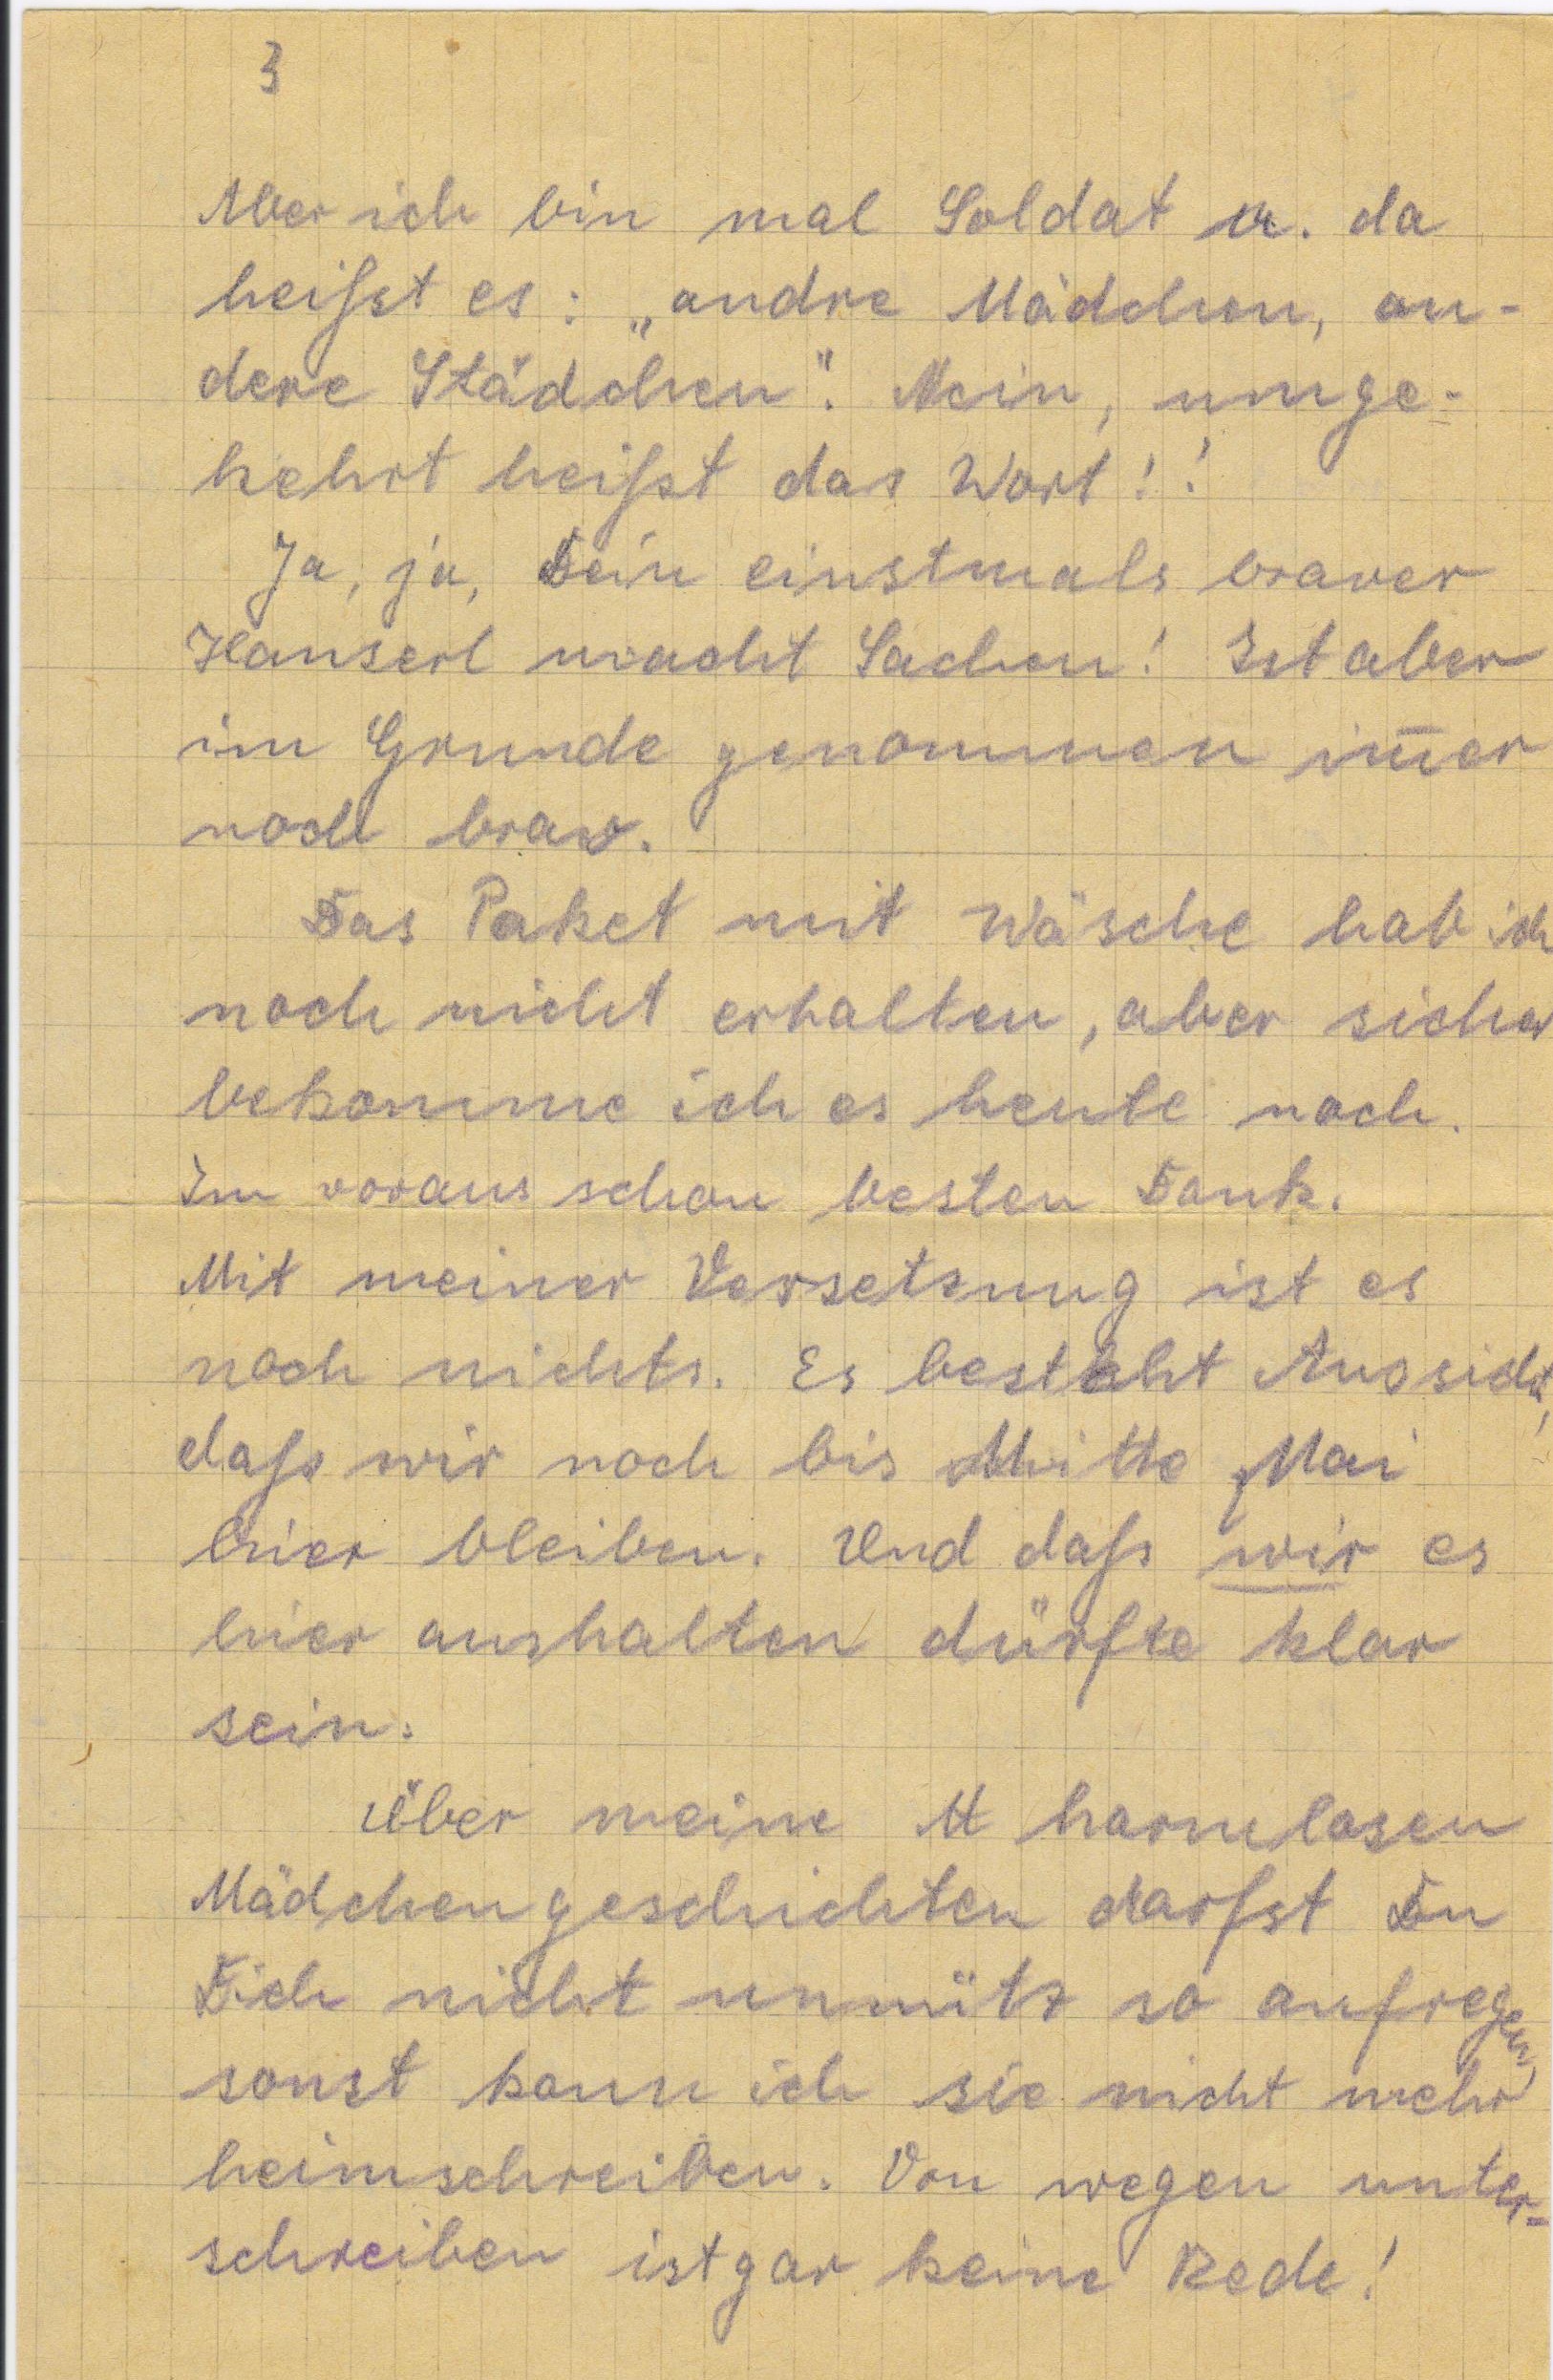 3
Aber ich bin mal Soldat u. da
heißt es: „andre Mädchen, an-
dere Städchen". Nein, umge-
kehrt heißt das Wort!!
Ja, ja, Dein einstmals braver
Hanserl macht Sachen! Ist aber
im Grunde genommen im̅er
noch brav.
Das Paket mit Wäsche hab ich
noch nicht erhalten, aber sicher
bekomme ich es heute noch.
Im voraus schon besten Dank.
Mit meiner Versetzung ist es
noch nichts. Es besteht Aussicht,
daß wir noch bis Mitte Mai
hier bleiben. Und daß wir es
hier aushalten dürfte klar
sein.
Über meine harmlosen
Mädchengeschichten darfst Du
Dich nicht unnütz so aufregen,
sonst kann ich sie nicht mehr
heimschreiben. Von wegen unter-
schreiben ist gar keine Rede!